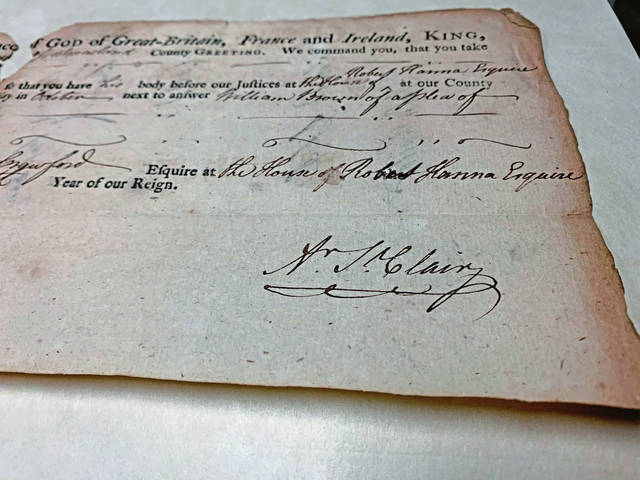 of GOD of Great-Britain, France and Ireland, KING,
County GREETING. We command you, that you take
Robert Hanna Esquire
so that you have his body before our Justices at the House of at our County
in October next to answer William Brown of a plea of
Crawford Esquire at the House of Robert Hanna Esquire
Year of our Reign.
Ar. St. Clair